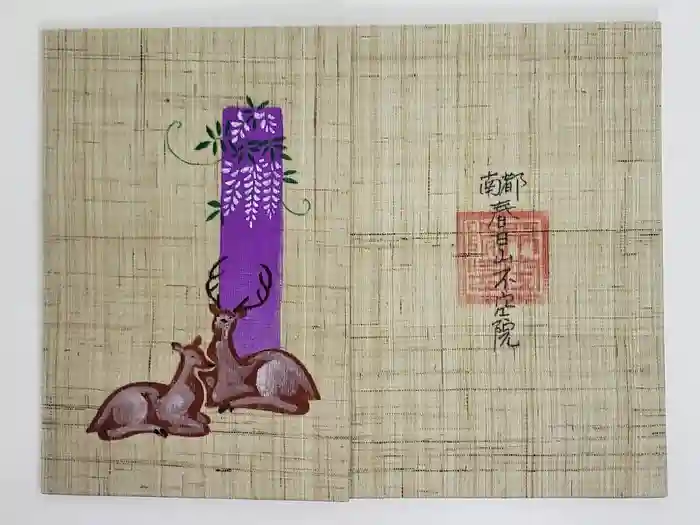 南都
春日山不空院